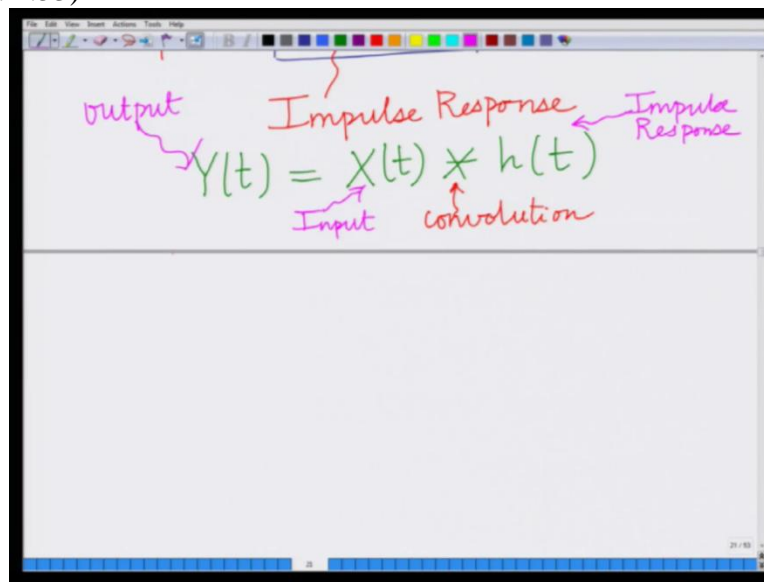 File Edit View Insert Actions Tools Help
output
Impulse Response
Impulse
Response
Y(t) = X(t) * h(t)
Input
convolution
21 / 53
21